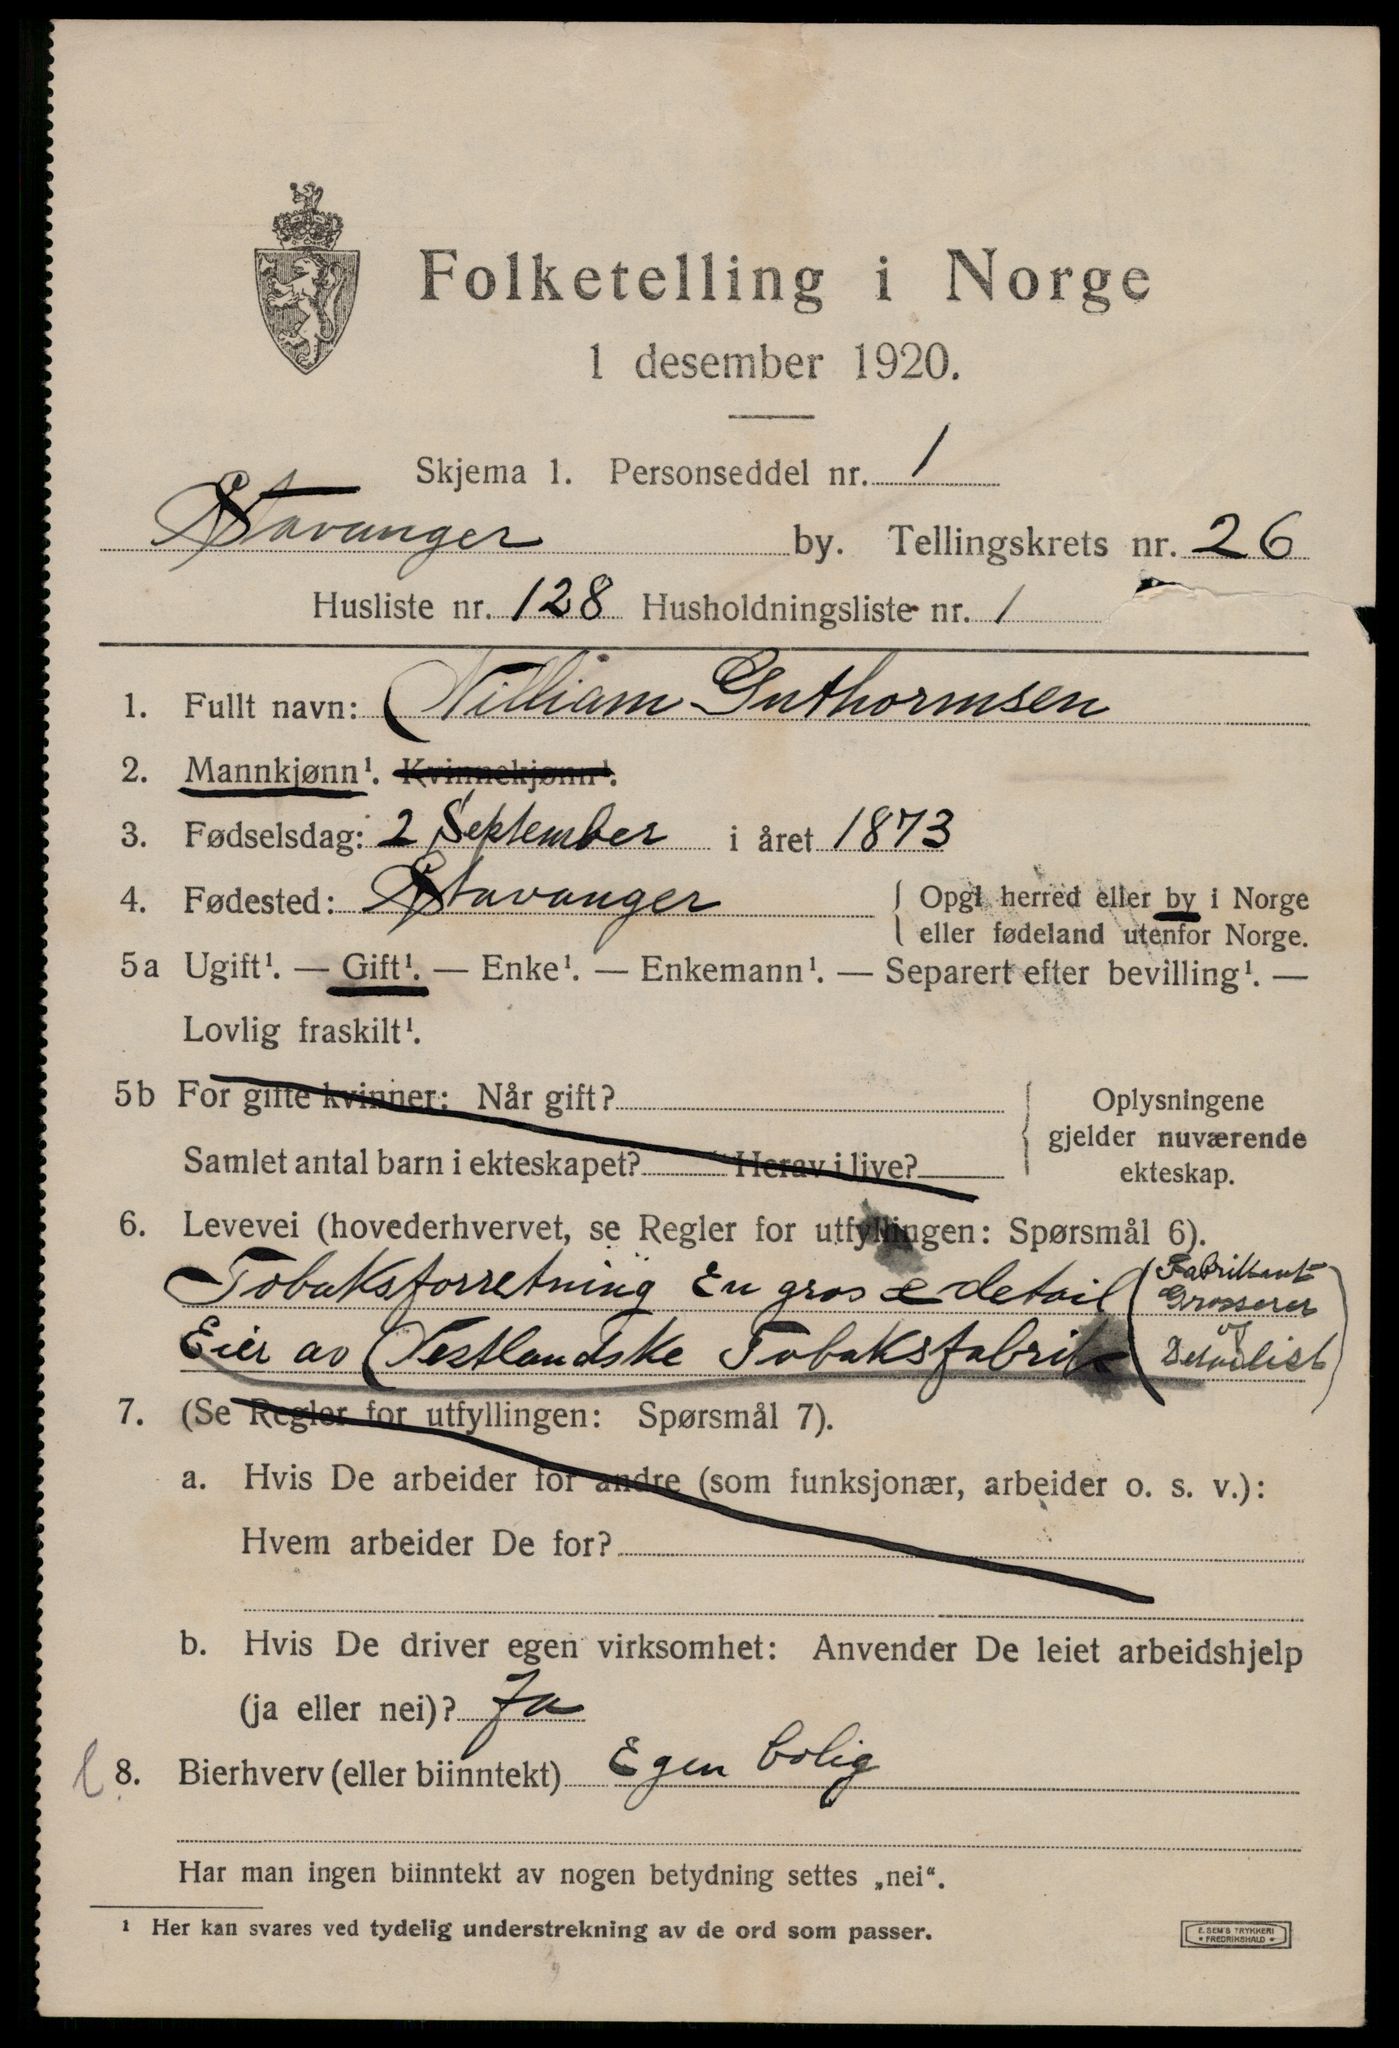 Folketelling i Norge
1 desember 1920.
Skjema 1. Personseddel nr. 1
Stavanger by. Tellingskrets nr. 26
Husliste nr. 128 Husholdningsliste nr. 1
1. Fullt navn: William Guthormsen
2. Mannkjønn¹. Kvinnekjønn¹.
3. Fødselsdag: 2 September i året 1873
4. Fødested: Stavanger { Opgi herred eller by i Norge
eller fødeland utenfor Norge.
5a Ugift¹. — Gift¹. — Enke¹. — Enkemann¹. — Separert efter bevilling¹. —
Lovlig fraskilt¹.
5b For gifte kvinner: Når gift? { Oplysningene
gjelder nuværende
Samlet antal barn i ekteskapet? Herav i live? ekteskap.
6. Levevei (hovederhvervet, se Regler for utfyllingen: Spørsmål 6).
Tobaksforretning En gros & detail (Fabrikant
Grosserer
Eier av Vestlandske Tobaksfabrik og
Detaillist)
7. (Se Regler for utfyllingen: Spørsmål 7).
a. Hvis De arbeider for andre (som funksjonær, arbeider o. s. v.):
Hvem arbeider De for?
b. Hvis De driver egen virksomhet: Anvender De leiet arbeidshjelp
(ja eller nei)? Ja
8. Bierhverv (eller biinntekt) Egen bolig
Har man ingen biinntekt av nogen betydning settes „nei“.
¹ Her kan svares ved tydelig understrekning av de ord som passer.
E. SEM'S TRYKKERI
* FREDRIKSHALD *